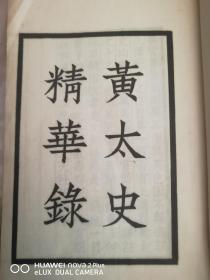 黃太史
精華錄
HUAWEI nova 2 Plus
eLUX DUAL CAMERA